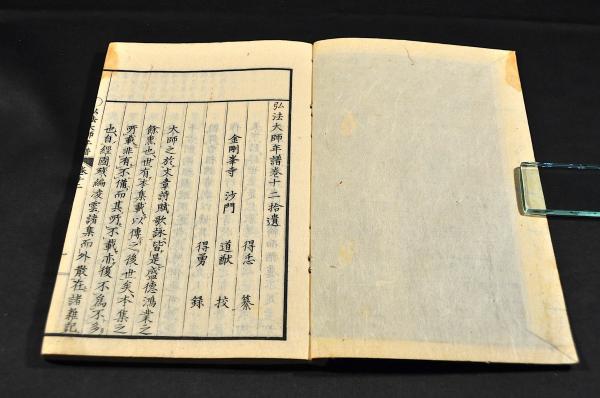 弘法大師年譜卷十二拾遺
得忝 纂
金剛峯寺 沙門 道猷 挍
得勇 録
大師之於文章詩賦歌詠皆是盛德鴻業之
餘熏也世有本集載以傳之後世矣本集之
所載非有不備而其所不載亦復不爲不多
也自經國殘編凌雲諸集而外散在諸雜記